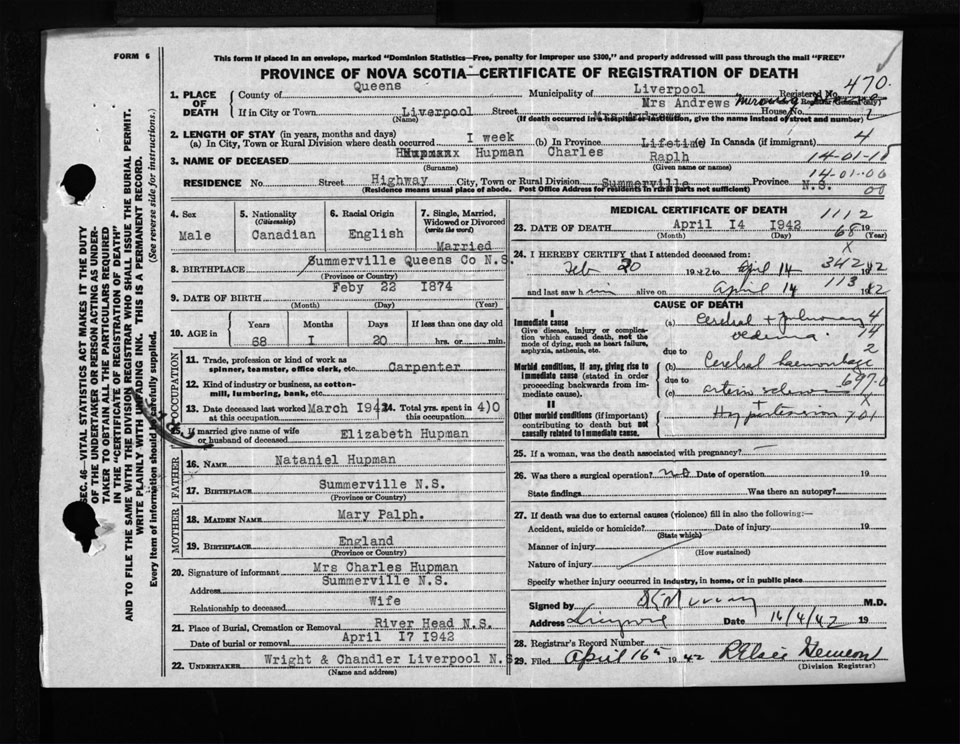 FORM 6
This form if placed in an envelope, marked "Dominion Statistics—Free, penalty for improper use $300," and properly addressed will pass through the mail "FREE"
PROVINCE OF NOVA SCOTIA—CERTIFICATE OF REGISTRATION OF DEATH
470.
1. PLACE OF DEATH
County of Queens Municipality of Liverpool Registered No.
(Registrar General only)
Mrs Andrews
If in City or Town Liverpool Street Mrs Andrews House No. 2
(Name) (If death occurred in a hospital or institution, give the name instead of street and number)
2. LENGTH OF STAY (in years, months and days)
(a) In City, Town or Rural Division where death occurred I week (b) In Province Lifetime (c) In Canada (if immigrant) 4
3. NAME OF DECEASED Hupman Charles Raplh 14-01-18
(Surname) (Given name or names)
14-01-00
RESIDENCE No. Street Highway City, Town or Rural Division Summerville Province N.S.
(Residence means usual place of abode. Post Office Address for residents in rural parts not sufficient) 00
4. Sex Male
5. Nationality (Citizenship) Canadian
6. Racial Origin English
7. Single, Married, Widowed or Divorced (write the word) Married
8. BIRTHPLACE Summerville Queens Co N.S.
(Province or Country)
9. DATE OF BIRTH Feby 22 1874
(Month) (Day) (Year)
10. AGE in Years Months Days If less than one day old
68 I 20 hrs. or min.
OCCUPATION
11. Trade, profession or kind of work as spinner, teamster, office clerk, etc. Carpenter
12. Kind of industry or business, as cotton-mill, lumbering, bank, etc.
13. Date deceased last worked at this occupation March 1942
14. Total yrs. spent in this occupation 4)0
15. If married give name of wife or husband of deceased Elizabeth Hupman
FATHER
16. NAME Nataniel Hupman
17. BIRTHPLACE Summerville N.S.
(Province or Country)
MOTHER
18. MAIDEN NAME Mary Palph.
19. BIRTHPLACE England
(Province or Country)
20. Signature of informant Mrs Charles Hupman
Address Summerville N.S.
Relationship to deceased Wife
21. Place of Burial, Cremation or Removal River Head N.S.
Date of burial or removal April I7 I942
22. UNDERTAKER Wright & Chandler Liverpool N.S
(Name and address)
MEDICAL CERTIFICATE OF DEATH 1112
23. DATE OF DEATH April I4 1942 68 19
(Month) (Day) (Year)
X
24. I HEREBY CERTIFY that I attended deceased from: 342
Feb 20 1942 to April 14 1942
113
and last saw him alive on April 14 1942
CAUSE OF DEATH
I
Immediate cause
Give disease, injury or complication which caused death, not the mode of dying, such as heart failure, asphyxia, asthenia, etc.
(a) Cerebral + pulmonary 4
oedema 14
due to 2
Morbid conditions, if any, giving rise to immediate cause (stated in order proceeding backwards from immediate cause).
(b) Cerebral haemorrhage
due to 697.0
(c) arterio sclerosis X
II
Other morbid conditions (if important) contributing to death but not causally related to immediate cause.
+ Hypertension 701
25. If a woman, was the death associated with pregnancy? —
26. Was there a surgical operation? no Date of operation 19
State findings Was there an autopsy?
27. If death was due to external causes (violence) fill in also the following:—
Accident, suicide or homicide? Date of injury 19
(State which)
Manner of injury
(How sustained)
Nature of injury
Specify whether injury occurred in industry, in home, or in public place
Signed by Murray M.D.
Address Liverpool Date 16/4/42 19
28. Registrar's Record Number
29. Filed April 16th 1942
(Division Registrar)
SEC. 46—VITAL STATISTICS ACT MAKES IT THE DUTY
OF THE UNDERTAKER OR PERSON ACTING AS UNDER-
TAKER TO OBTAIN ALL THE PARTICULARS REQUIRED
IN THE "CERTIFICATE OF REGISTRATION OF DEATH"
AND TO FILE THE SAME WITH THE DIVISION REGISTRAR WHO SHALL ISSUE THE BURIAL PERMIT.
WRITE PLAINLY WITH UNFADING INK. THIS IS A PERMANENT RECORD.
Every item of information should be carefully supplied. (See reverse side for instructions.)